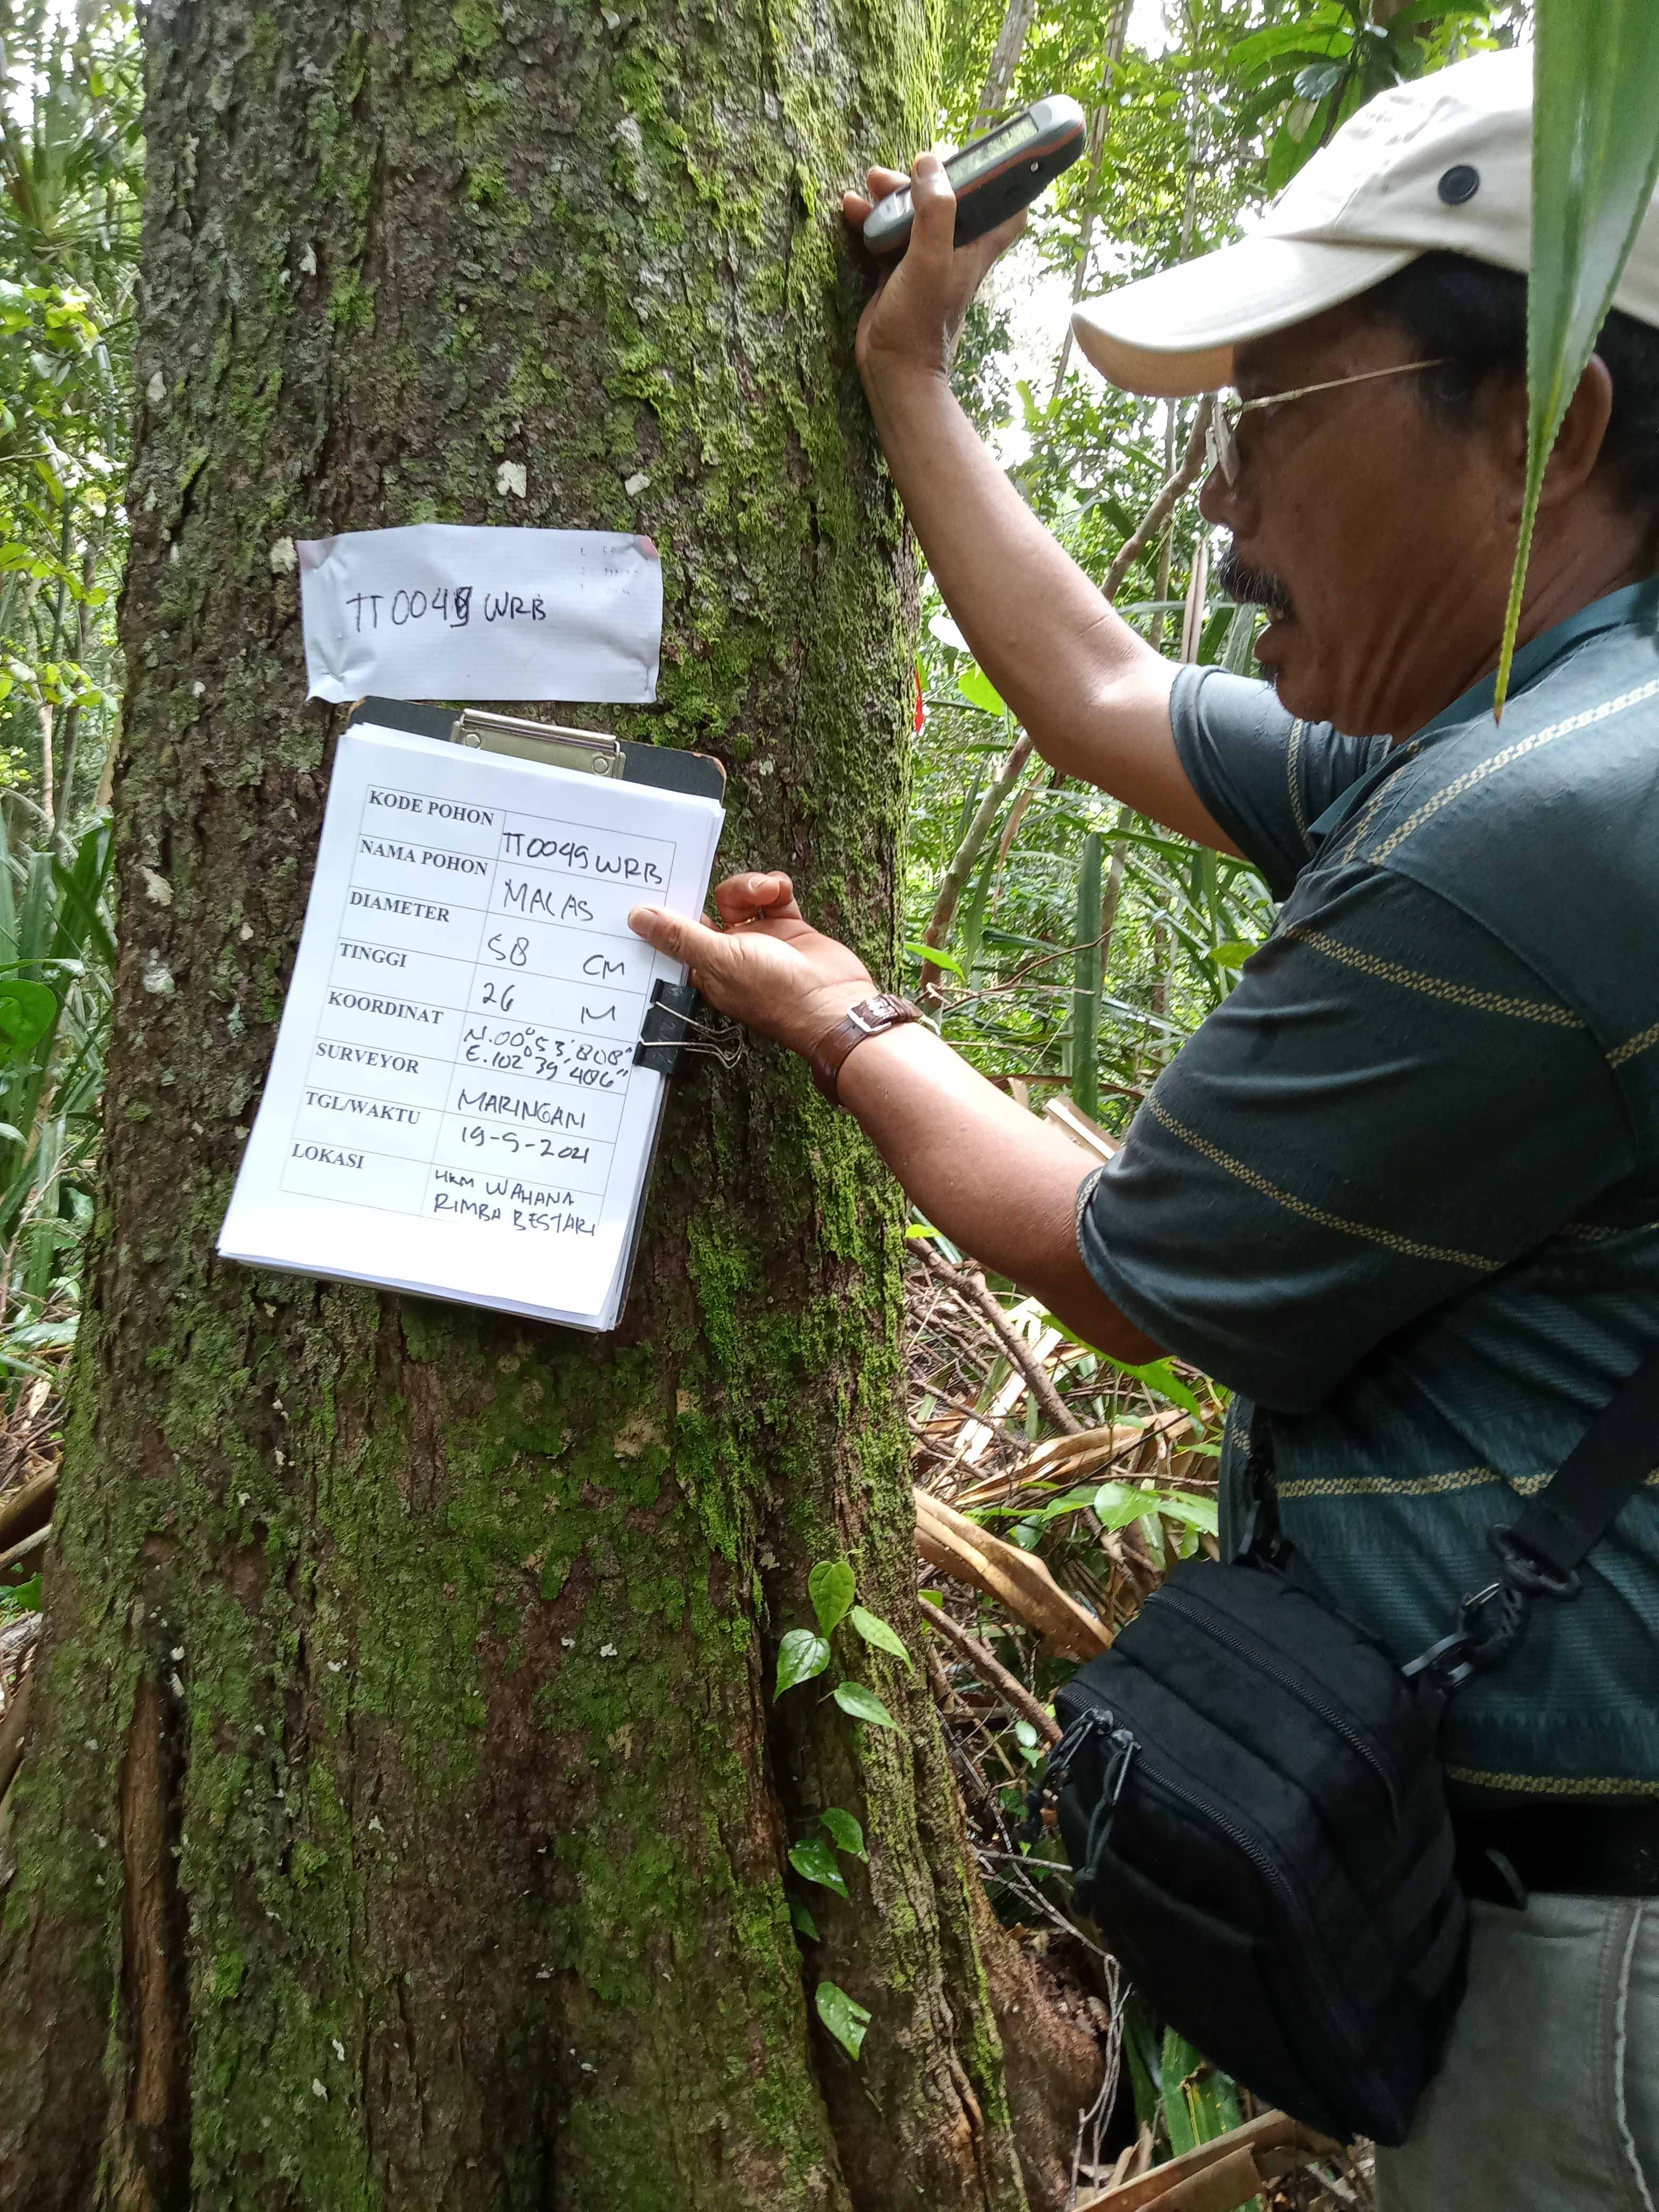 TT0049 WRB
KODE POHON TT0049 WRB
NAMA POHON MALAS
DIAMETER 58 CM
TINGGI 26 M
KOORDINAT N.00°53'808"
E.102°39'406"
SURVEYOR MARINGAN
TGL/WAKTU 19-5-2021
LOKASI HKM WAHANA
RIMBA BESTARI